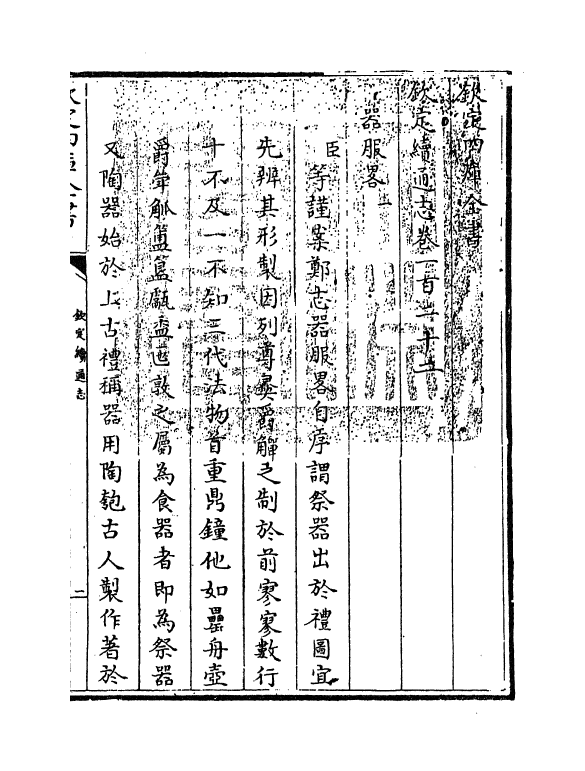 欽定四庫全書
欽定續通志卷一百二十二
器服畧上
臣等謹案鄭志器服畧自序謂祭器出於禮圖宜
先辨其形製因列尊彝爵觶之制於前寥寥數行
十不及一不知三代法物首重鼎鐘他如罍舟壺
爵斝觚簠簋甗盉匜敦之屬為食器者即為祭器
又陶器始於上古禮稱器用陶匏古人製作著於
欽定續通志